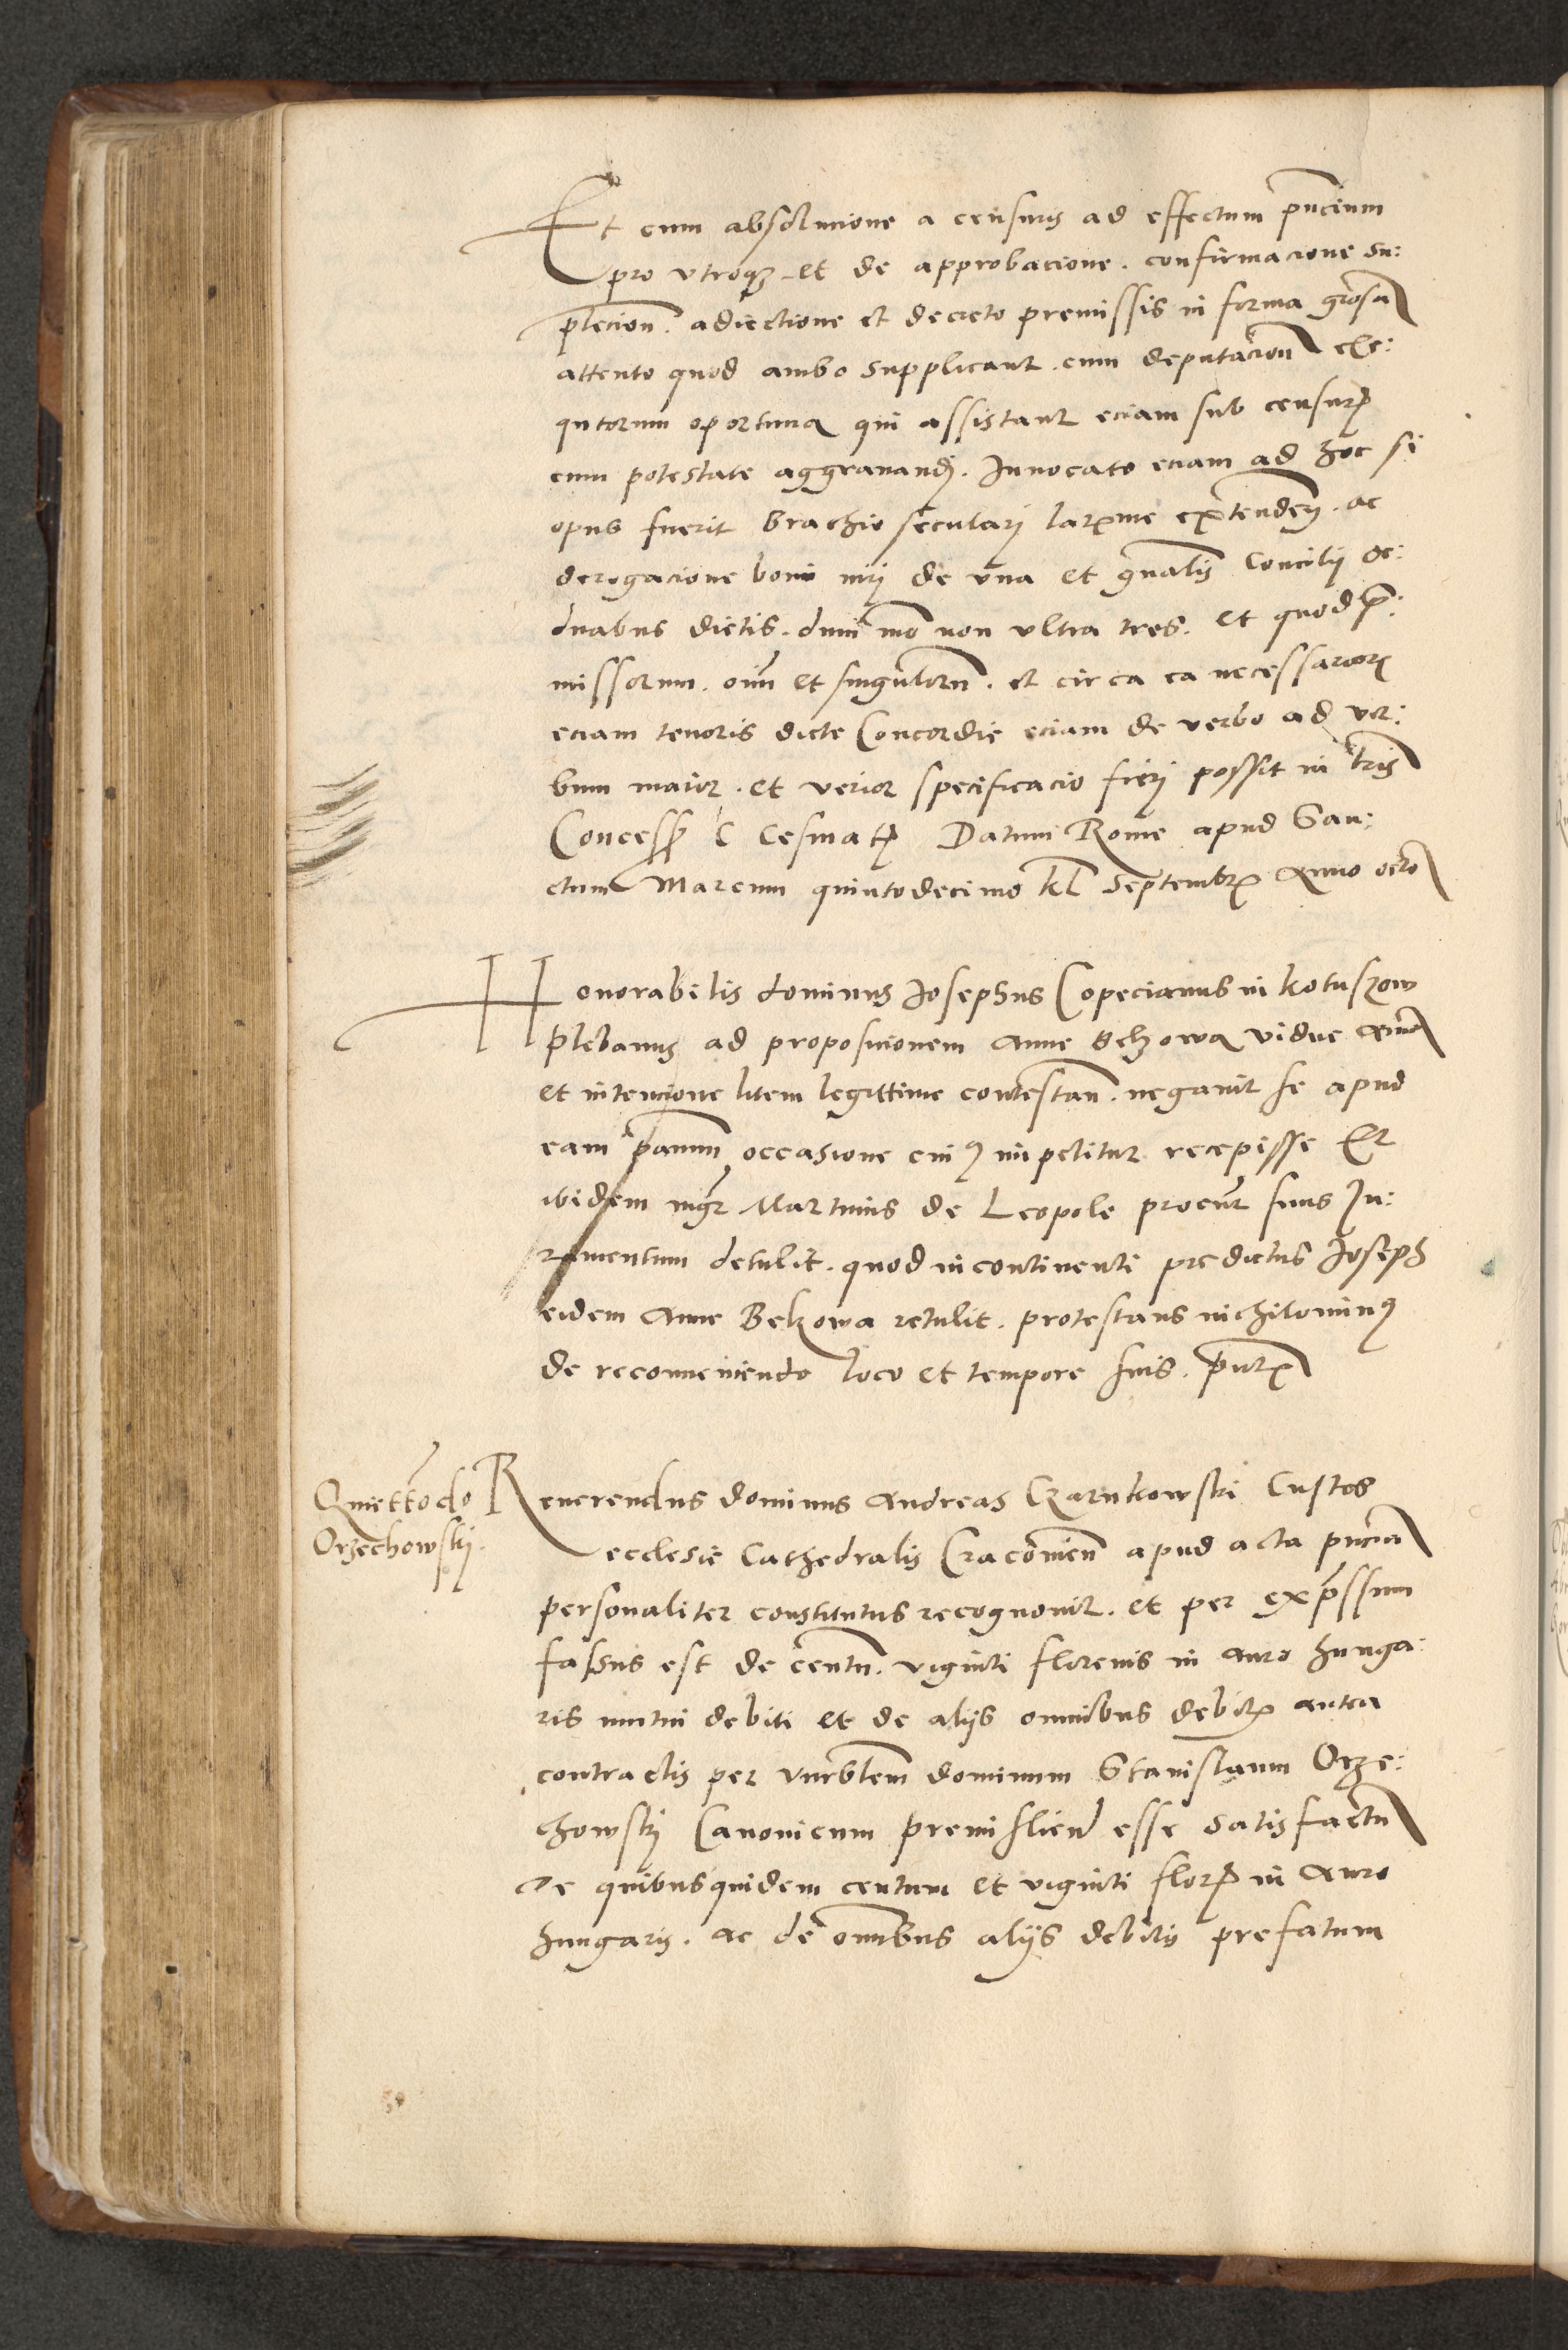 Et cum absolucione a censuris ad effectum pñcium
pro vtroqz et de approbacione . confirmacione su:
plecion̄ . adiectione et decreto premissis in forma grosa
attento quod ambo supplicant . cum deputacion̄ exe:
qutorum oportuna qui assistant eciam sub censur̄
cum potestate aggravandj . Innocato eciam ad hoc si
opus fuerit brachio secularj larxme extenden̄ . ac
derogacione boni nrj de vna et gñalis Concilij de:
duabus dictis . dum mō non vltra tres . et quod p̄:
missorum . oīm et singulorū . et circa ea necessarior̄
eciam tenoris dicte Concordie eciam de verbo ad ver:
bum maior . et verior specificacio fierj possit in lr̄is
Concess̄ C Cesinat̄ Datum Rome apud San:
ctum Marcum quintodecimo kl̄ Septembr̄ Anno octo
Honorabilis dominus Josephus Copecianus in kotuszow
plebanus ad proposicionem Anne Belzowa vidue
et intencione litem legittime contestan̄ . negavit se apud
eam pannū occasione cui9 impetitur recepisse Et
ibidem mgr̄ Martinus de Leopole procur̄ suus Ju:
ramentum detulit . quod incontinenti predictus Joseph
eidem Anne Belzowa retulit . protestans nichilomin9
de reconueniendo loco et tempore suis . pn̄tx
Quiettō do
Orzechowskj .
Reuerendus dominus Andreas Czarnkowski Custos
ecclesie Cathedralis Cracouien̄ apud acta pñcia
personaliter constitutus recognouit . et per expressum
fassus est de centū . viginti florenis in auro hunga:
ris mutui debiti et de alijs omnibus debit̄ antea
contractis per venrblem dominum Stanislaum Orze:
chowskj Canonicum premislien̄ esse satisfactū
De quibusquidem centum et viginti flor̄ in auro
hungaris . ac de om̄ibus alijs debitis prefatum